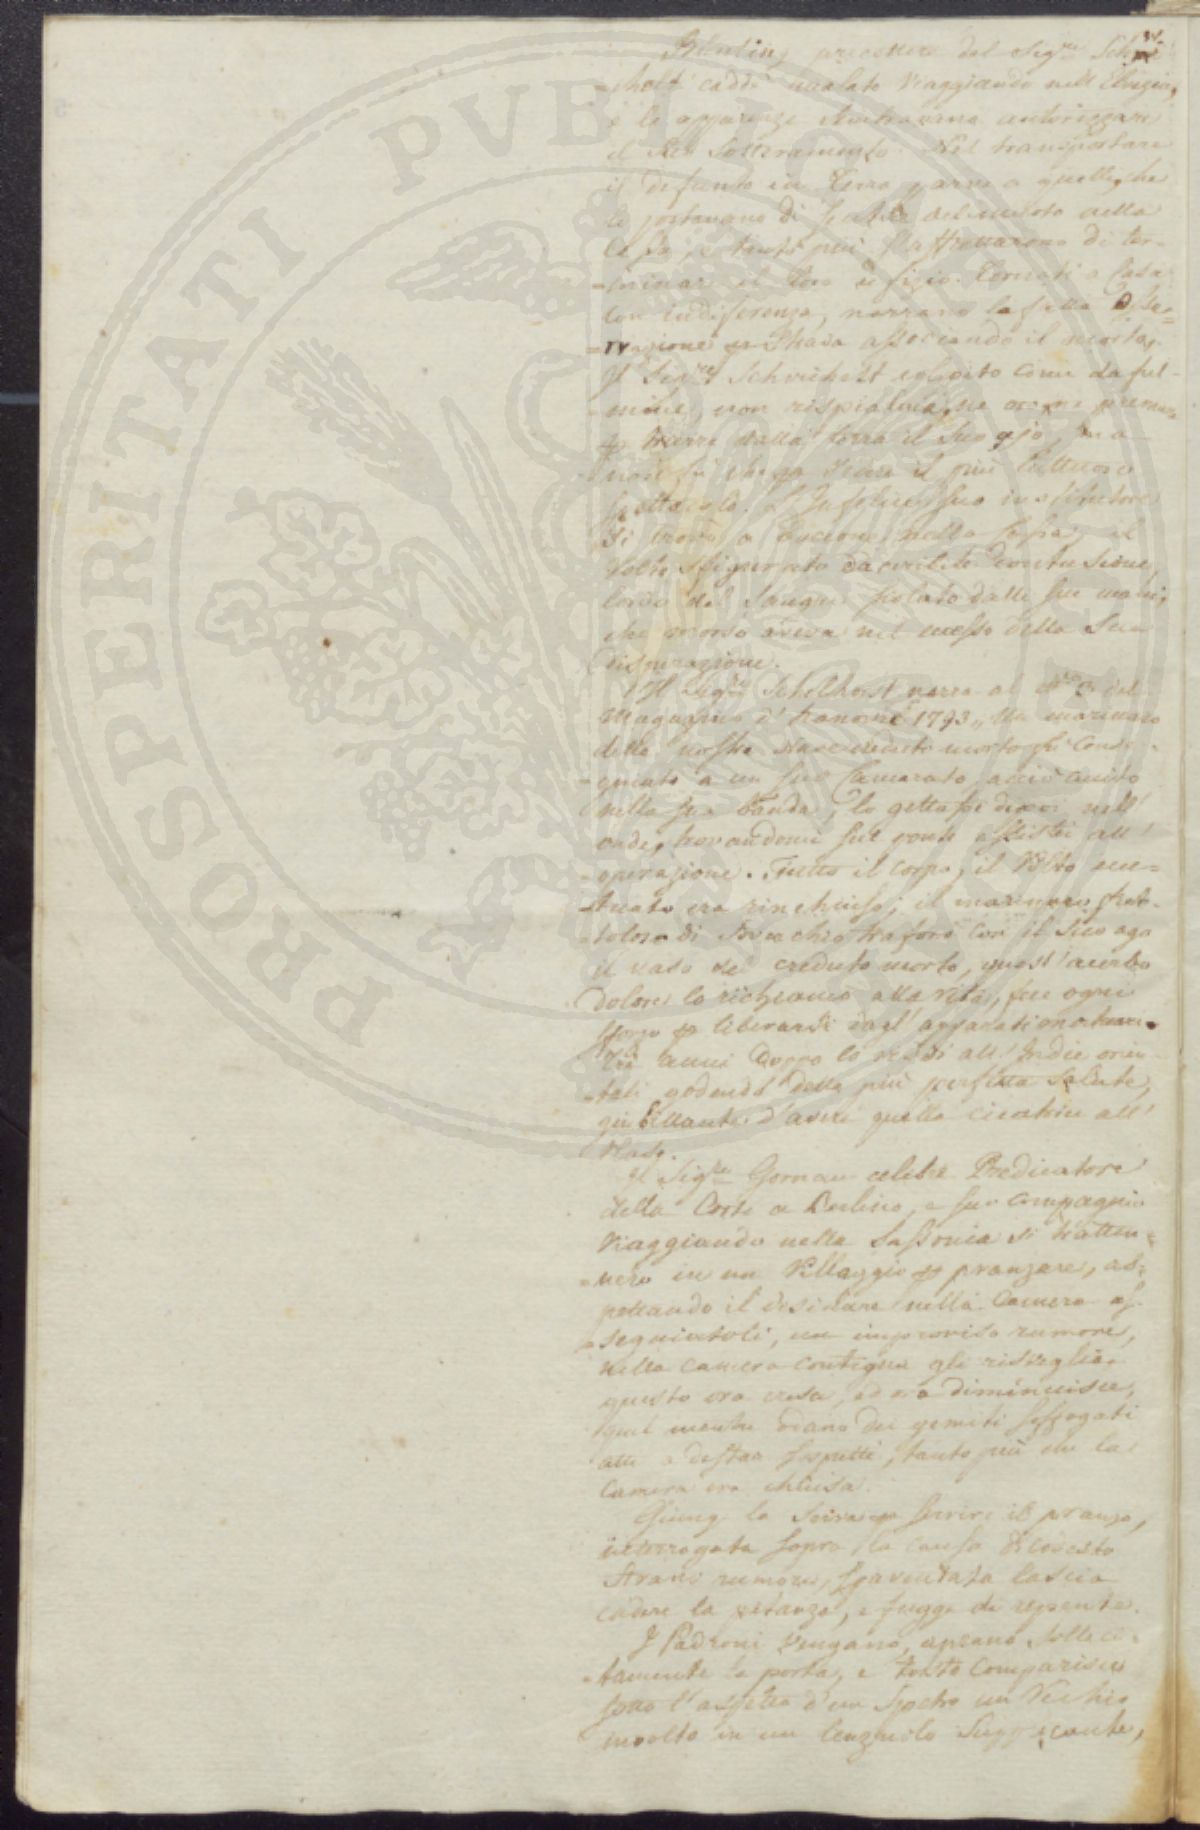 34.
Bünting precettore del Sigre Schwi-
-cholt caddè malato Viaggiando nell Elvezia,
e le apparenze sembravano autorizzare
il suo Sotterramento. Nel transportare
il defunto in Terra parve a quelli, che
lo portavano di sentire del moto nella
Cassa, e tanto più s'affrettarono di ter-
-minare il loro offizio. Tornati a Casa
con indiferenza, narrano la fatta Osse-
-rvazione p strada associando il morto.
Il Sigre Schwicholt colpito come da ful-
-mine, non rispiarmia, ne oro ne premure
p trarre dalla terra il suo ajo, ma
non fù che p vedere il più luttuoso
spettacolo. L'Infelice suo institutore
si trovò a boccone nella Cassa, il
Volto sfigurato da orribile Contusione,
lordo del Sangue scolato dalle sue mani,
che morso aveva nel eccesso della Sua
disperazione.
Il Sigre Schelhorst narra al 8re del
Magazino d'Hanovre 1793 „ Un marinaro
della nostra Nave creduto morto fù Conse-
-gnato a un suo Camerato, acciò cucito
nella sua branda, lo gettasse dipoi nell'
onde, trovandomi sul ponte assistei all'
operazione. Tutto il corpo, il Volto ecce-
-tuato era rinchiuso; il marinaro fret-
-toloso di trafforò con il suo ago
il naso del creduto morto, quest'acerbo
dolore lo richiamò alla vita, fece ogni
sforzo p liberarsi dagl'apparati mortuari.
Tre anni doppo lo vidi all'Indie orien-
-tali godendo della più perfetta Salute,
giubillante d'avere quella cicatrice all'
Naso.
Il Sigre Gornau celebre Predicatore
della Corte a Berlino, e sua Compagnia
Viaggiando nella Sassonia si tratten-
-nero in un Villaggio p pranzare, as-
pettando il desinare nella Camera as-
-segniatoli, un improviso rumore,
nella camera contigua gli risveglia.
questo ora cresce, ed ora diminuisce,
qual mentre odano dei gemiti soffogati
atti a destar sospetti, tanto più che la
Camera era chiusa.
Giung la Serva p servire il pranzo,
interrogata sopra la causa di cotesto
strano rumore, spaventata lascia
cadere la pietanza, e fugge di repente.
I Padroni vengano, aprano solleci-
-tamente la porta, e tosto Comparisce
sotto l'aspetto d'un Spettro un Vecchio
involto in un lenzuolo Supplicante,
PROSPERITATI PVBLICAE